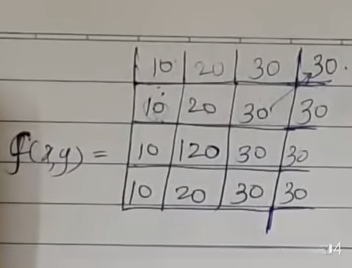 10 20 30 30
10 20 30 30
f(x,y) = 10 120 30 30
10 20 30 30